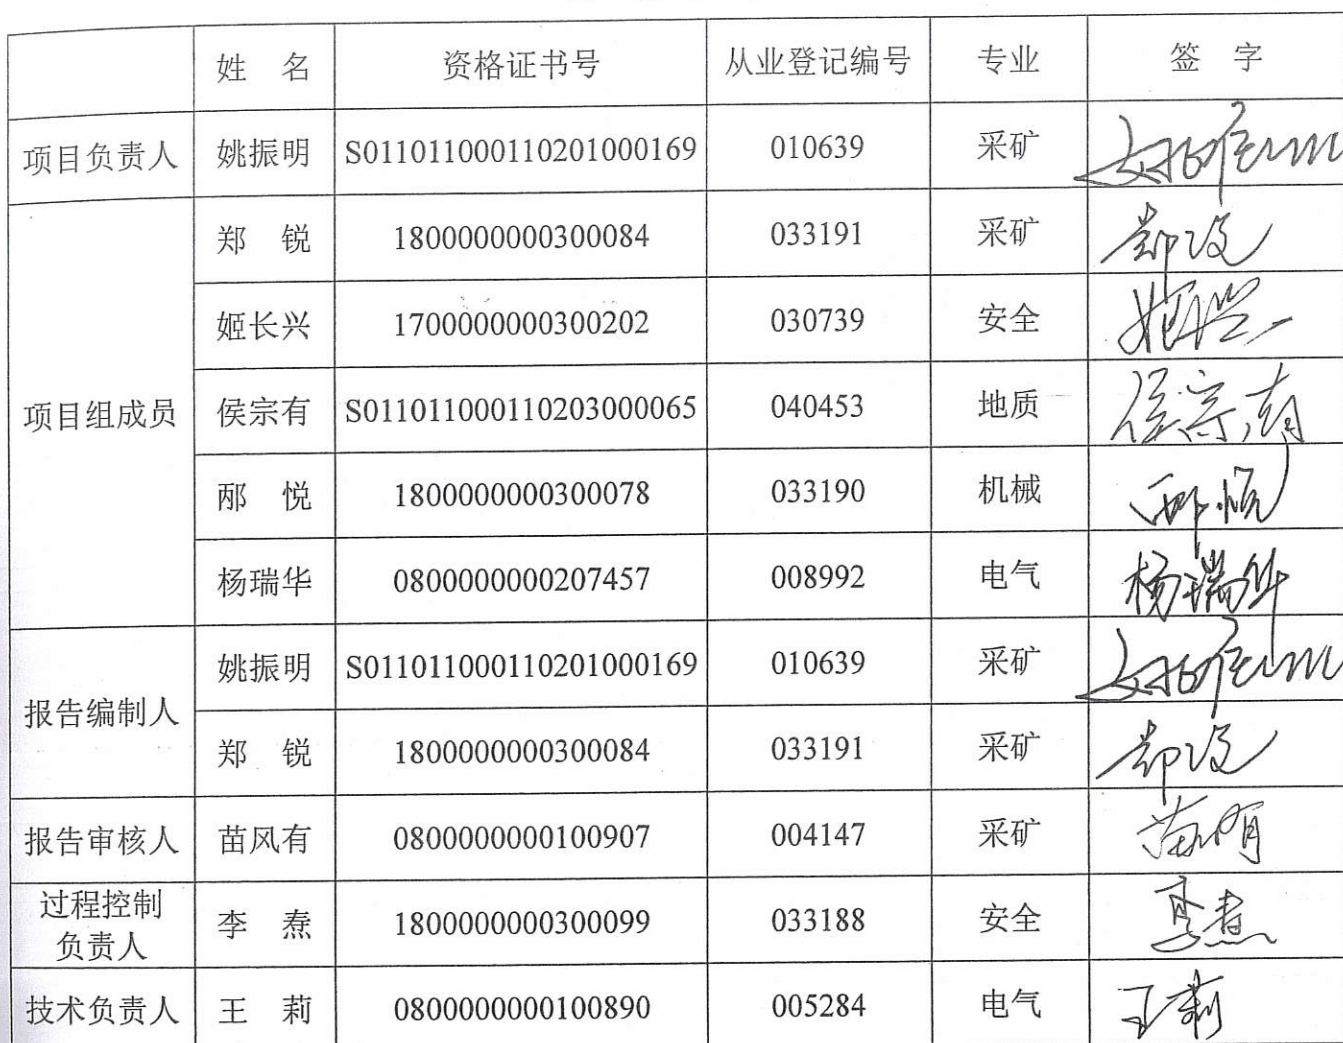 姓 名 资格证书号 从业登记编号 专业 签 字
项目负责人 姚振明 S011011000110201000169 010639 采矿
项目组成员 郑 锐 1800000000300084 033191 采矿 郑锐
姬长兴 1700000000300202 030739 安全
侯宗有 S011011000110203000065 040453 地质
邴 悦 1800000000300078 033190 机械
杨瑞华 0800000000207457 008992 电气 杨瑞华
报告编制人 姚振明 S011011000110201000169 010639 采矿
郑 锐 1800000000300084 033191 采矿 郑锐
报告审核人 苗风有 0800000000100907 004147 采矿
过程控制
负责人 李 焘 1800000000300099 033188 安全
技术负责人 王 莉 0800000000100890 005284 电气 王莉